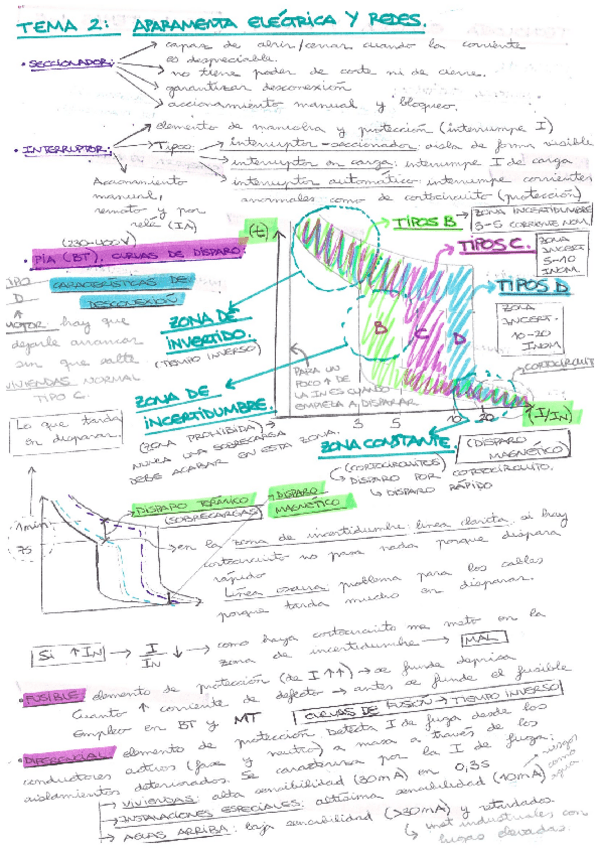 TEMA 2: APARAMENTA ELÉCTRICA Y REDES.
• SECCIONADOR:
→ capaz de abrir/cerrar cuando la corriente
es despreciable.
→ no tiene poder de corte ni de cierre.
→ garantizar desconexión
→ accionamiento manual y bloqueo.
• INTERRUPTOR:
→ elemento de maniobra y protección (interrumpe I)
→ Tipos
→ interruptor-seccionador: aisla de forma visible
→ interruptor en carga: interrumpe I de carga
→ interruptor automático: interrumpe corrientes
anormales como de cortocircuito (protección)
Accionamiento
manual,
remoto y por
relé (IA)
(230-400V)
• PIA (BT). CURVAS DE DISPARO.
CARACTERÍSTICAS DE
DESCONEXIÓN
TIPO
D
↑
MOTOR hay que
dejarle arrancar
sin que salte
VIVIENDAS NORMAL
TIPO C.
Lo que tarda
en disparar
(t)
TIPOS B → ZONA INCERTIDUMBRE
3-5 CORRIENTE NOM.
TIPOS C.
ZONA
INCERT
5-10
INOM.
TIPOS D
ZONA
INCERT.
10-20
INOM
ZONA DE
INVERTIDO.
(TIEMPO INVERSO)
B
C
D
CORTOCIRCUITO
PARA UN
POCO ↑ DE
LA IN ES CUANDO
EMPIEZA A DISPARAR
3 5 10 20
(I/IN)
ZONA DE
INCERTIDUMBRE.
(ZONA PROHIBIDA) →
NUNCA UNA SOBRECARGA
DEBE ACABAR EN ESTA ZONA.
ZONA CONSTANTE.
(DISPARO
MAGNÉTICO)
(CORTOCIRCUITOS)
↳ DISPARO POR CORTOCIRCUITO.
↳ DISPARO RÁPIDO
1min
→ DISPARO TÉRMICO
(SOBRECARGAS)
→ DISPARO
MAGNÉTICO
→ en la zona de incertidumbre línea clarita, si hay
cortocircuito no pasa nada porque dispara
rápido
Línea oscura: problema para los cables
porque tarda mucho en disparar.
Si ↑ IN → I/IN ↓ → como haya cortocircuito me meto en la
zona de incertidumbre → MAL
• FUSIBLE elemento de protección (de I ↑↑) → se funde deprisa
Cuanto ↑ corriente de defecto → antes se funde el fusible
Empleo en BT y MT
CURVAS DE FUSIÓN → TIEMPO INVERSO
• DIFERENCIAL elemento de protección. Detecta I de fuga desde los
conductores activos (fase y neutro) a masa a través de los
aislamientos deteriorados. Se caracteriza por la I de fuga:
→ VIVIENDAS: alta sensibilidad (30mA) en 0,3s
→ INSTALACIONES ESPECIALES: altísima sensibilidad (10mA) → riesgos
como
agua
→ AGUAS ARRIBA: baja sensibilidad (>30mA) y retardados.
↳ inst industriales con
fugas elevadas.